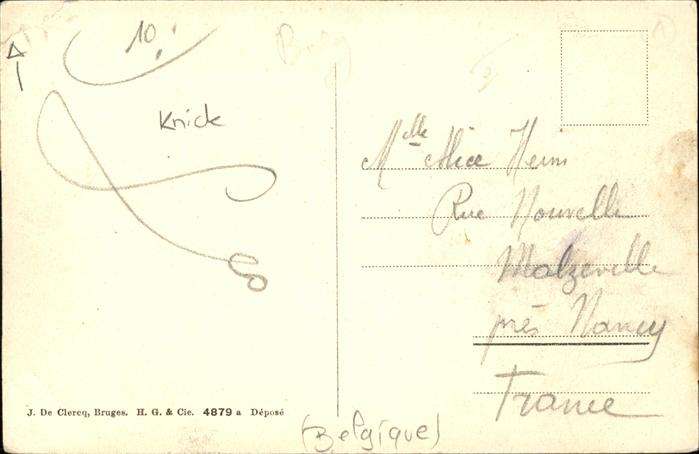 10.
Knick
Melle Alice Heim
Rue Nouvelle
Malzeville
près Nancy
France
J. De Clercq, Bruges. H. G. & Cie. 4879 a Déposé
(Belgique)